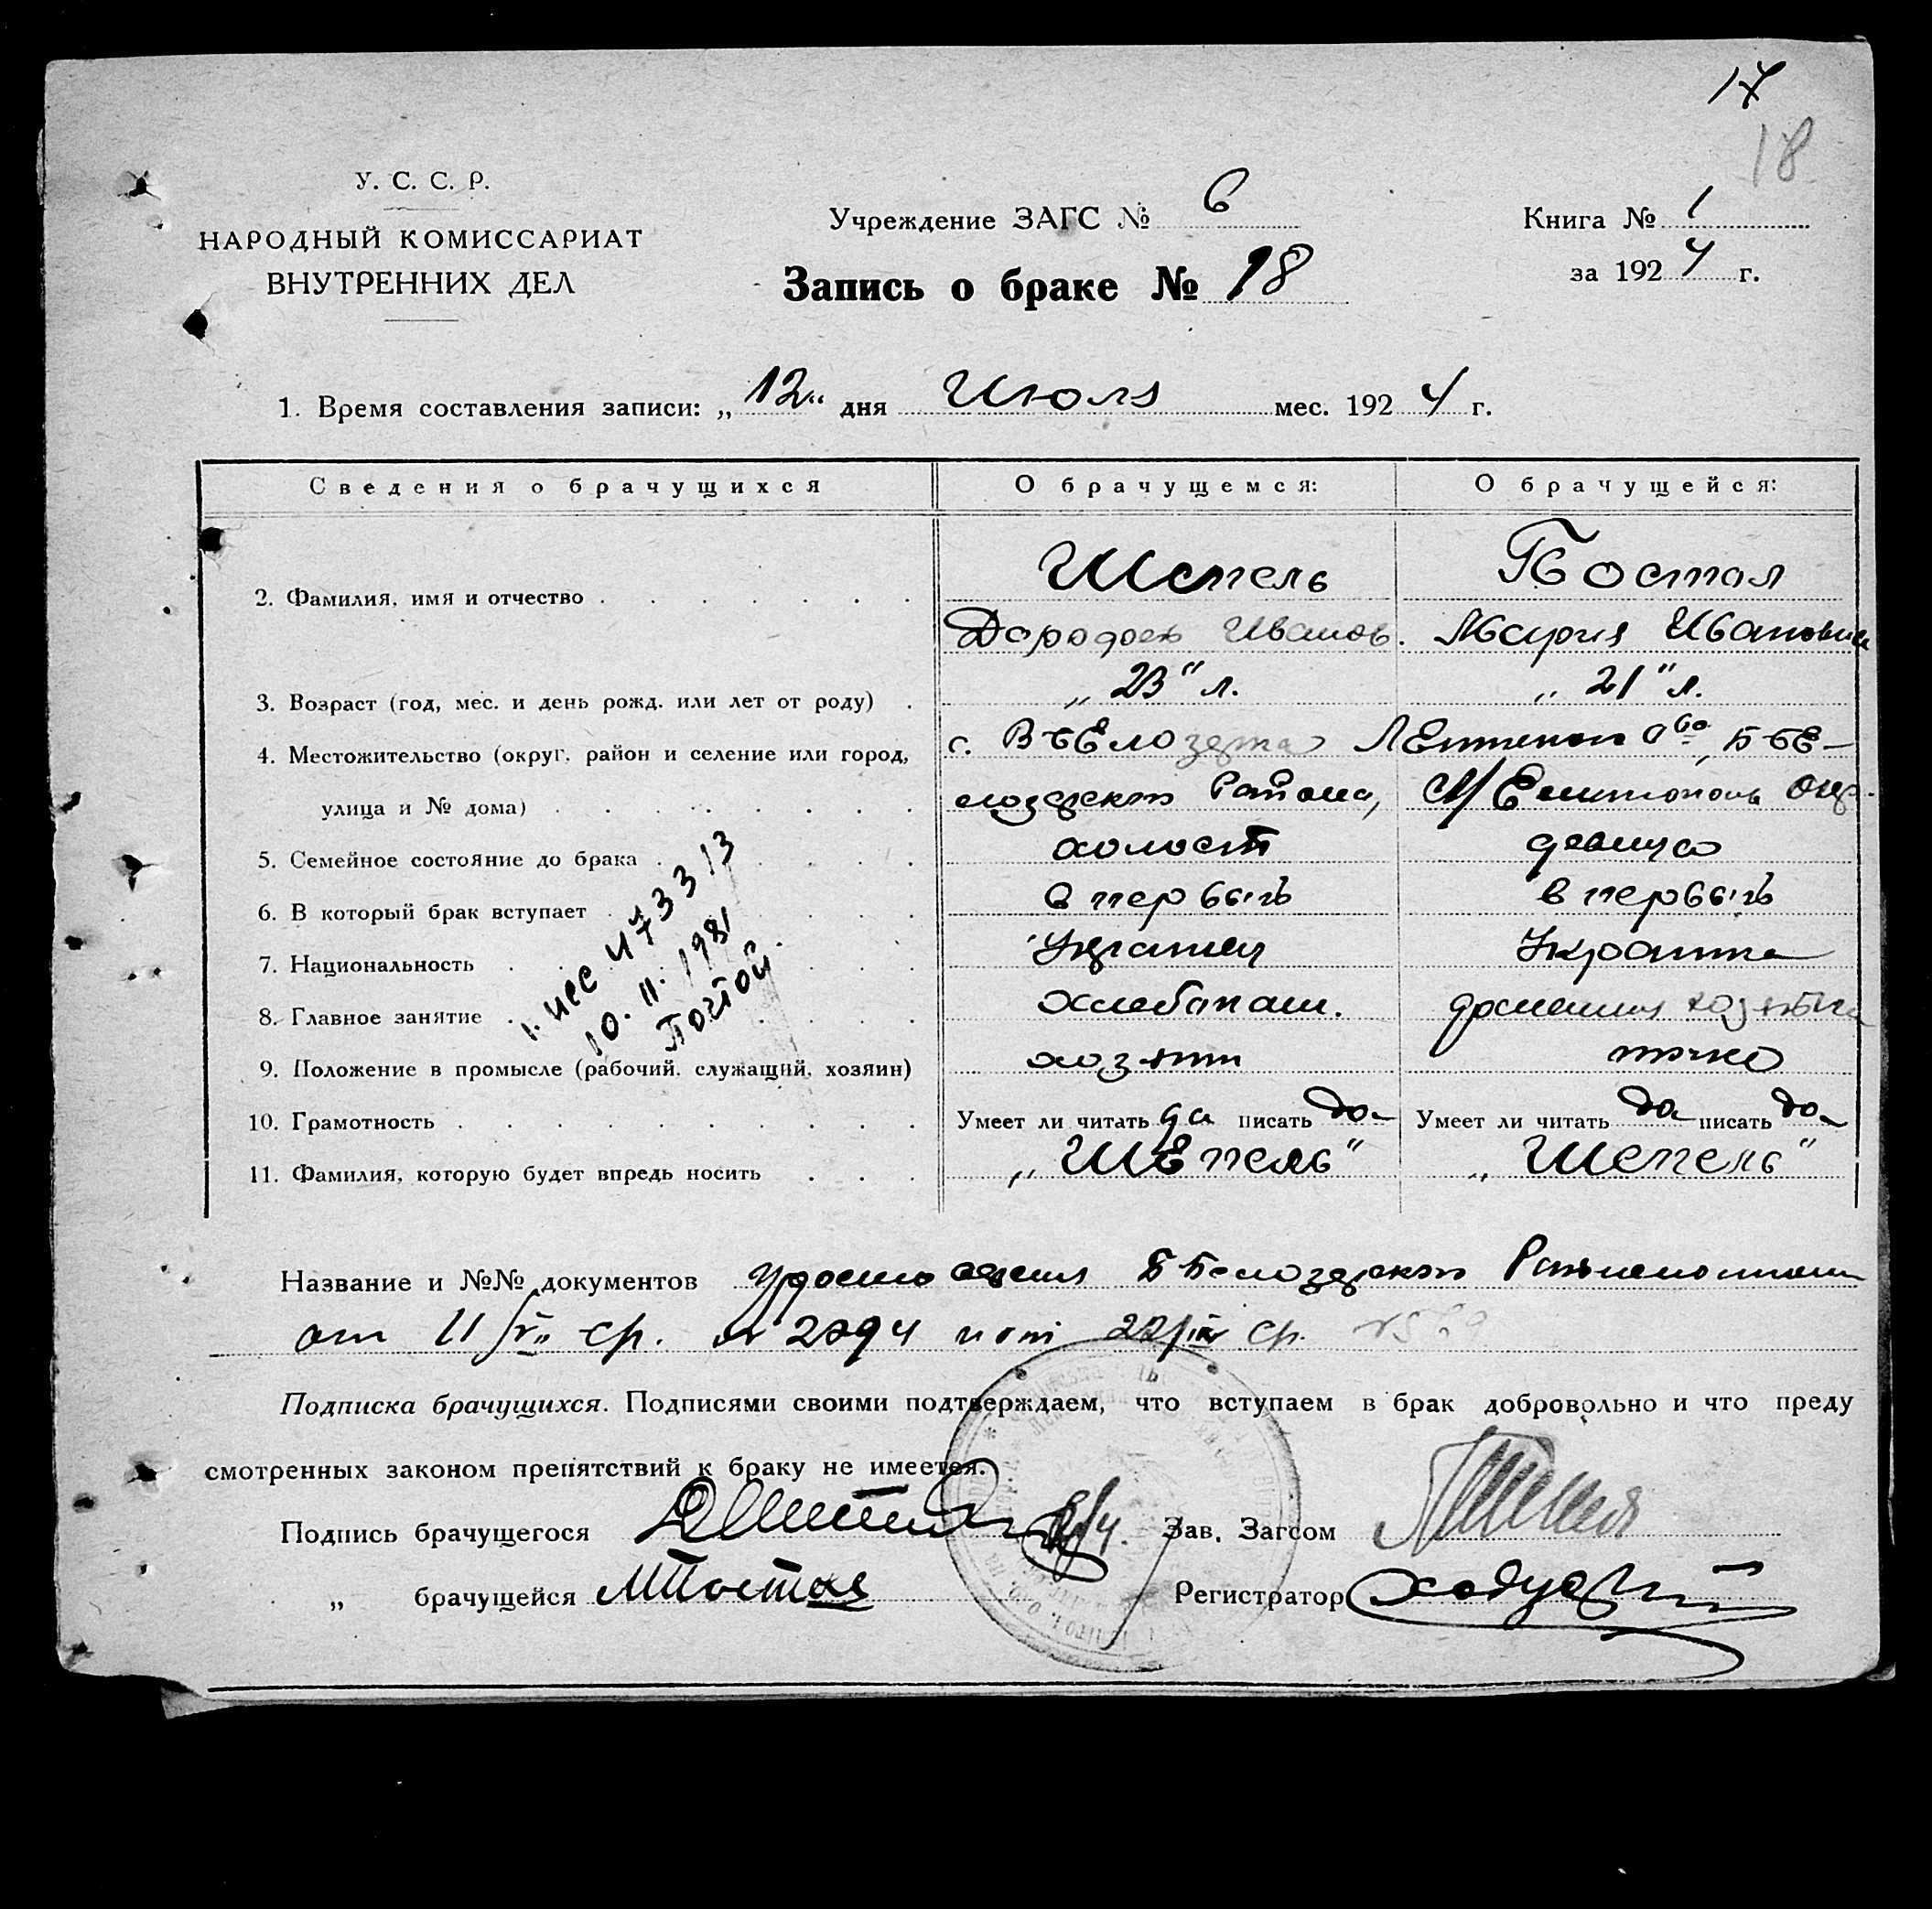 17
18
У. С. С. Р.
НАРОДНЫЙ КОМИССАРИАТ
ВНУТРЕННИХ ДЕЛ
Учреждение ЗАГС № 6
Книга № 1
Запись о браке № 18
за 1924 г.
1. Время составления записи: „12" дня Июля мес. 1924 г.
Сведения о брачущихся
О брачущемся:
О брачущейся:
2. Фамилия, имя и отчество
Шепель
Постол
Дорофей Иванов.
Мария Ивановна
3. Возраст (год, мес. и день рожд. или лет от роду)
„23" л.
„21" л.
4. Местожительство (округ, район и селение или город,
с.
улица и № дома)
Района,
5. Семейное состояние до брака
холост
девица
6. В который брак вступает
в первый
в первый
7. Национальность
Украинец
Украинка
8. Главное занятие
хлебопаш.
домашняя хозяйка
9. Положение в промысле (рабочий, служащий, хозяин)
хозяин
10. Грамотность
Умеет ли читать да писать да
Умеет ли читать да писать да
11. Фамилия, которую будет впредь носить
„Шепель"
„Шепель"
10. 11. 1981
Почтой
Название и №№ документов Удостоверения Б-Белозерского
от 11/VII ср. № 2294 и от ср.
Подписка брачущихся. Подписями своими подтверждаем, что вступаем в брак добровольно и что преду
смотренных законом препятствий к браку не имеется.
Подпись брачущегося
Зав. Загсом
„ брачущейся МПостол
Регистратор